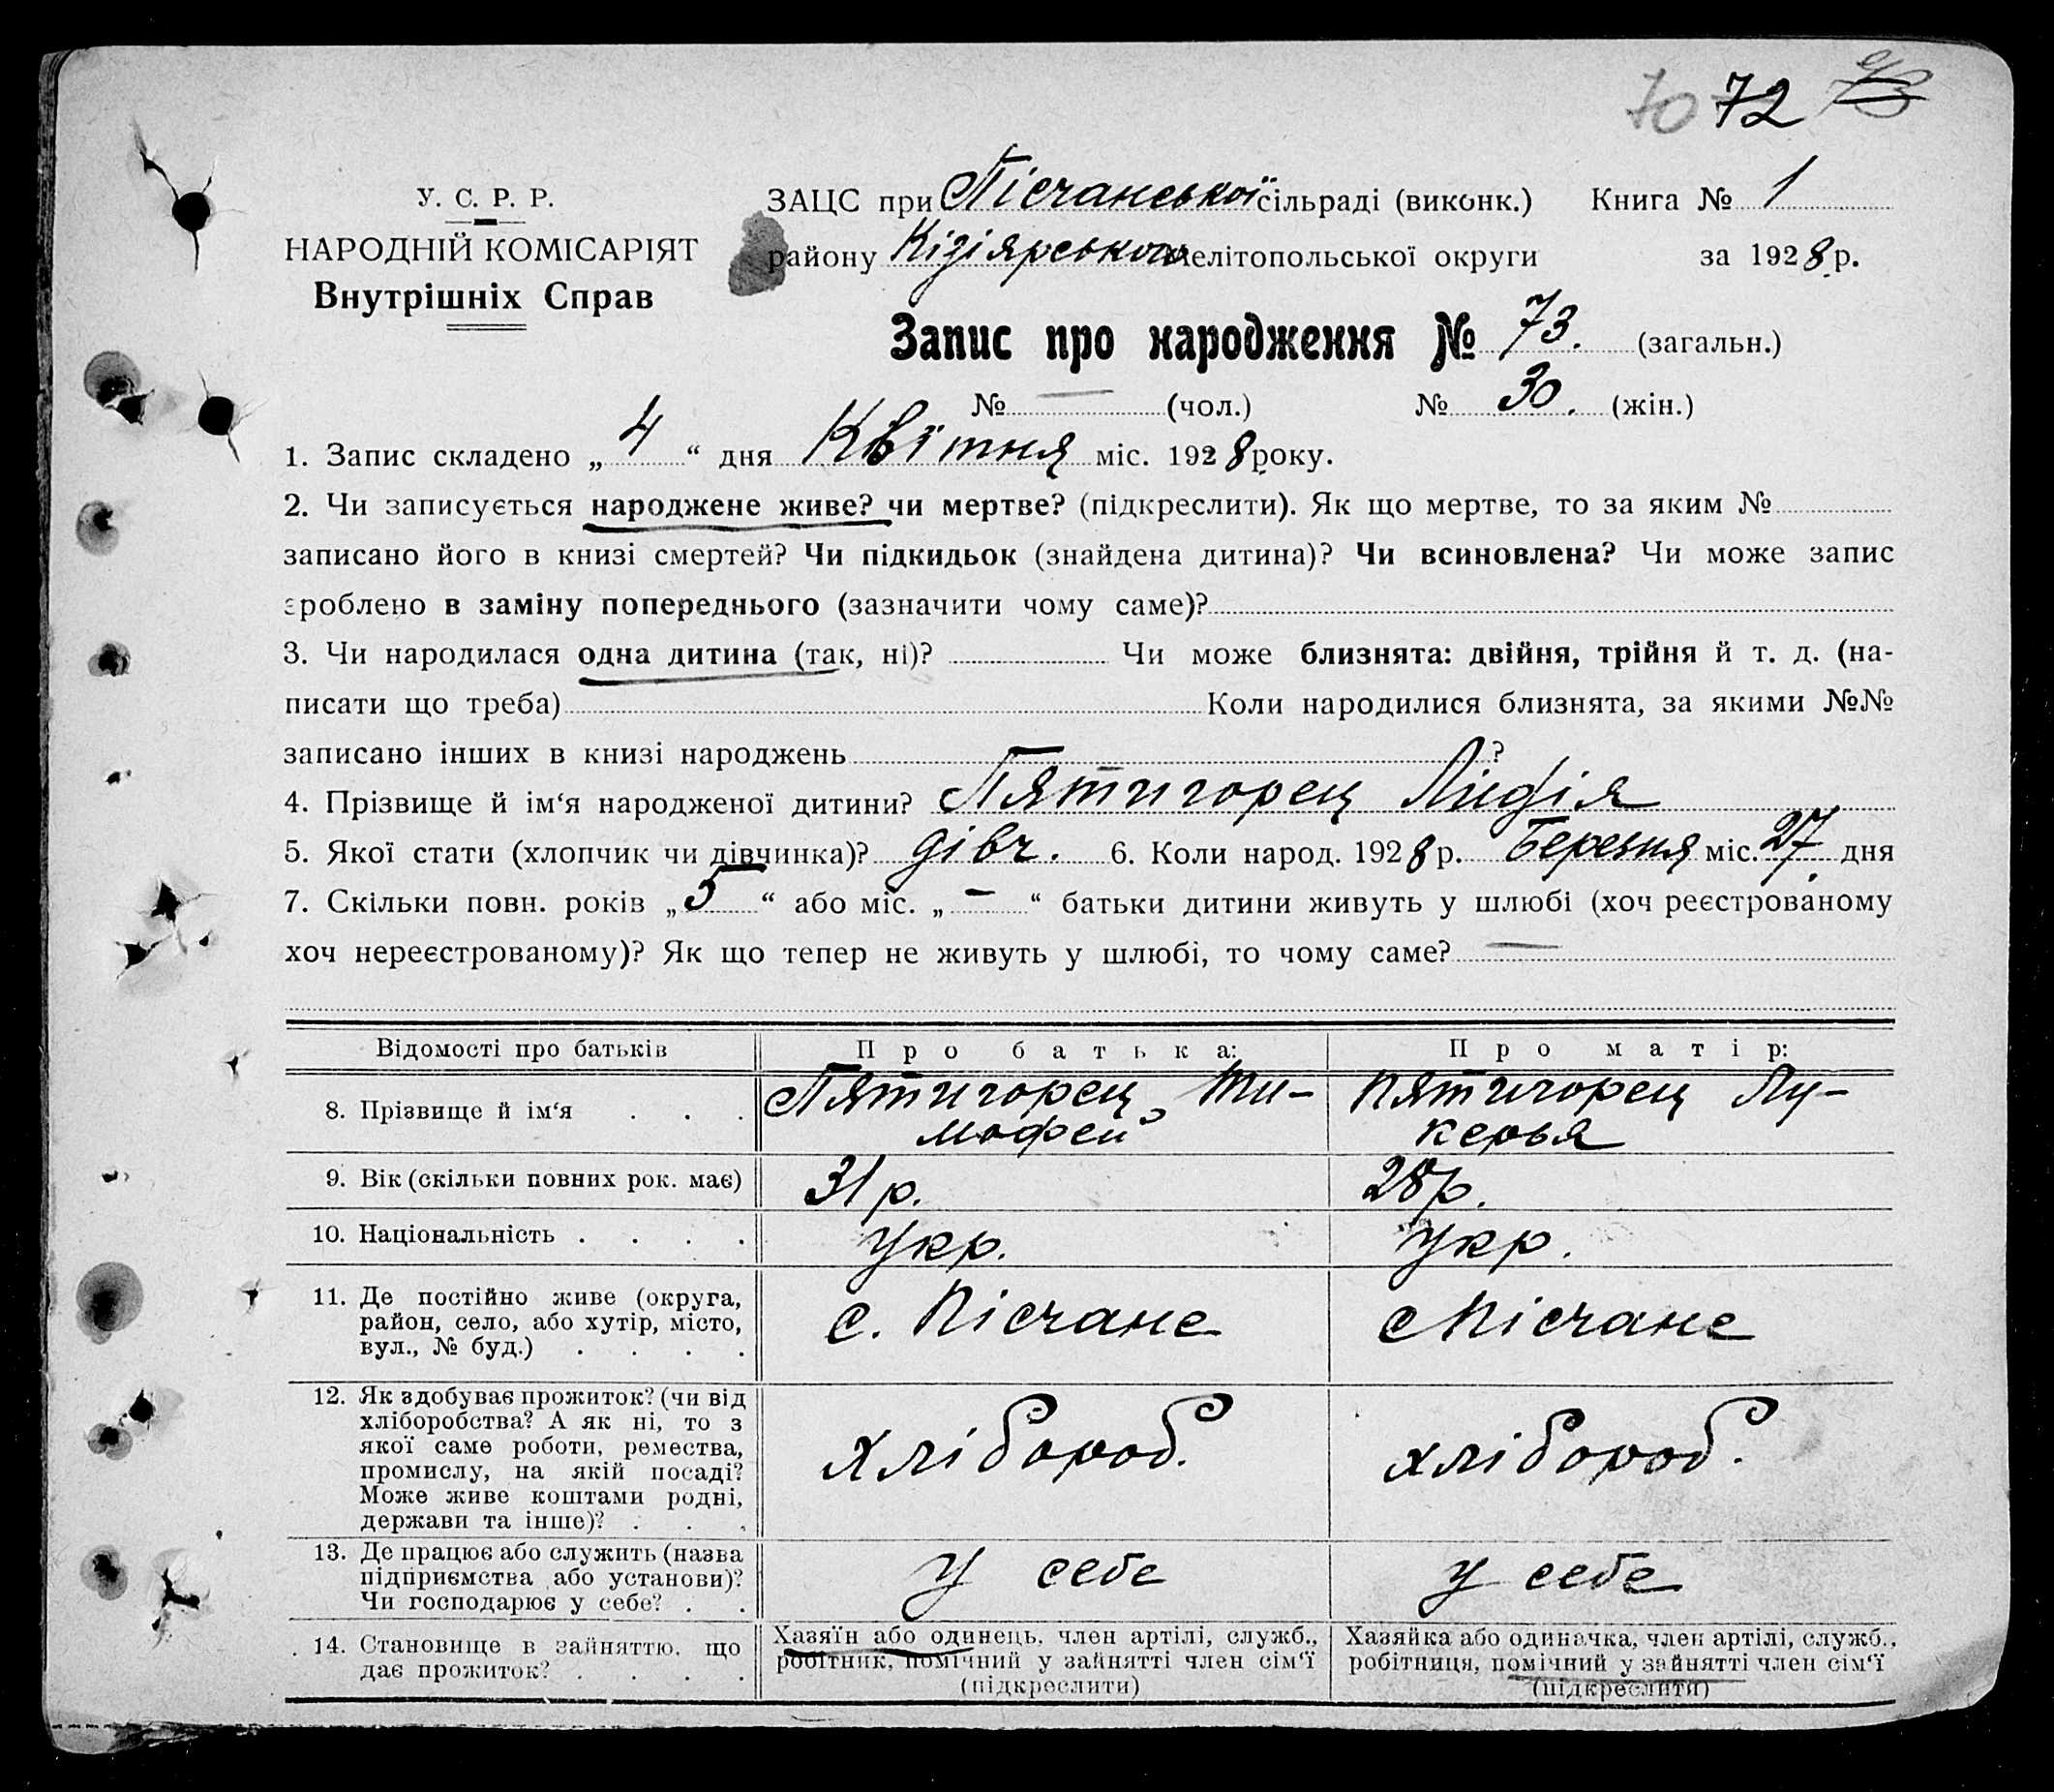 70 72 73
У. С. Р. Р.
НАРОДНІЙ КОМІСАРІЯТ
Внутрішніх Справ
ЗАЦС при Пісчанської сільраді (виконк.) Книга № 1
району Кізіярського Мелітопольської округи за 1928 р.
Запис про народження № 73. (загальн.)
№ — (чол.) № 30. (жін.)
1. Запис складено „4“ дня Квітня міс. 1928 року.
2. Чи записується народжене живе? чи мертве? (підкреслити). Як що мертве, то за яким №
записано його в книзі смертей? Чи підкидьок (знайдена дитина)? Чи всиновлена? Чи може запис
зроблено в заміну попереднього (зазначити чому саме)?
3. Чи народилася одна дитина (так, ні)? Чи може близнята: двійня, трійня й т. д. (на-
писати що треба) Коли народилися близнята, за якими №№
записано інших в книзі народжень ?
4. Прізвище й ім‘я народженої дитини? Пятигорец Лидія
5. Якої стати (хлопчик чи дівчинка)? дівч. 6. Коли народ. 1928 р. Березня міс. 27 дня
7. Скільки повн. років „5“ або міс. „—“ батьки дитини живуть у шлюбі (хоч реєстрованому
хоч нереєстрованому)? Як що тепер не живуть у шлюбі, то чому саме? —
Відомості про батьків Про батька: Про матір:
8. Прізвище й ім‘я . . . Пятигорец Ти-
мофей
Пятигорец Лу-
керья
9. Вік (скільки повних рок. має) 31 р. 28 р.
10. Національність . . . . Укр. Укр.
11. Де постійно живе (округа,
район, село, або хутір, місто,
вул., № буд.) . . . .
с. Пісчане
с Пісчане
12. Як здобуває прожиток? (чи від
хліборобства? А як ні, то з
якої саме роботи, ремества,
промислу, на якій посаді?
Може живе коштами родні,
держави та інше)? . . .
хлібороб.
хлібороб.
13. Де працює або служить (назва
підприємства або установи)?
Чи господарює у себе? . .
у себе
у себе
14. Становище в зайняттю, що
дає прожиток? . . . .
Хазяїн або одинець, член артілі, служб.,
робітник, помічний у зайнятті член сім‘ї
(підкреслити)
Хазяйка або одиначка, член артілі, служб.,
робітниця, помічний у зайнятті член сім‘ї
(підкреслити)